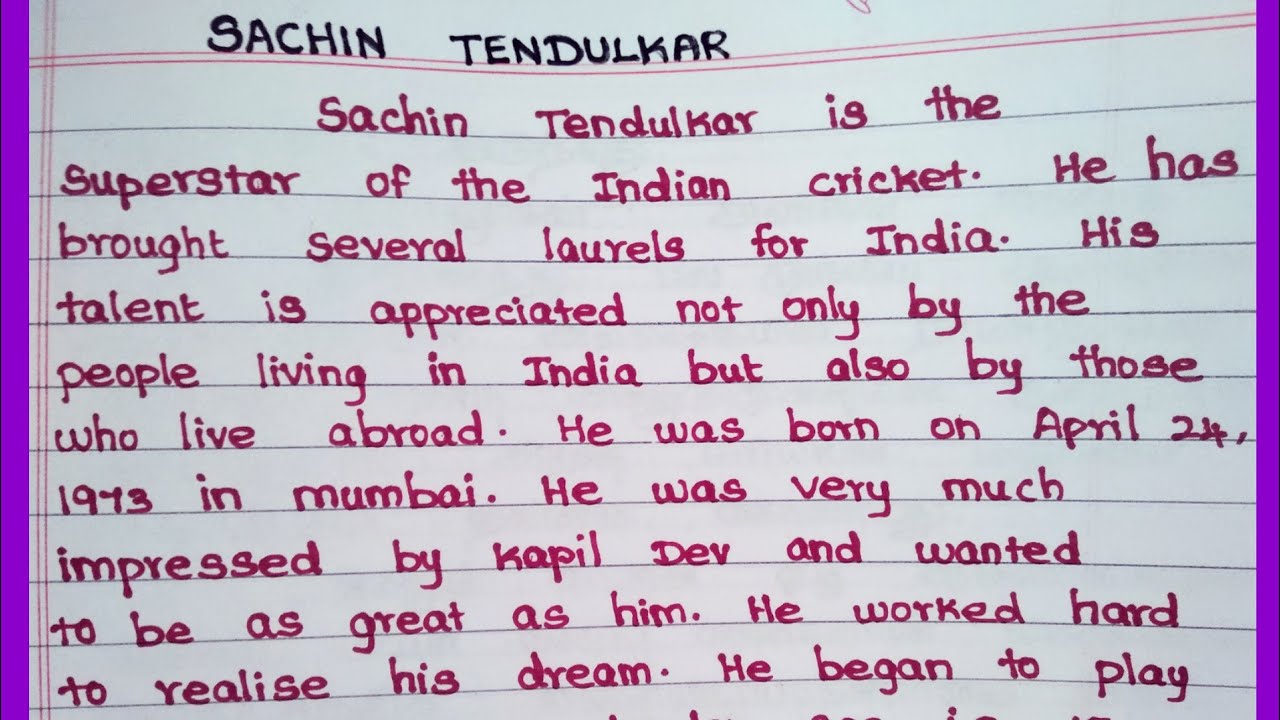 SACHIN TENDULKAR
Sachin Tendulkar is the
superstar of the Indian cricket. He has
brought several laurels for India. His
talent is appreciated not only by the
people living in India but also by those
who live abroad. He was born on April 24,
1973 in mumbai. He was very much
impressed by Kapil Dev and wanted
to be as great as him. He worked hard
to realise his dream. He began to play